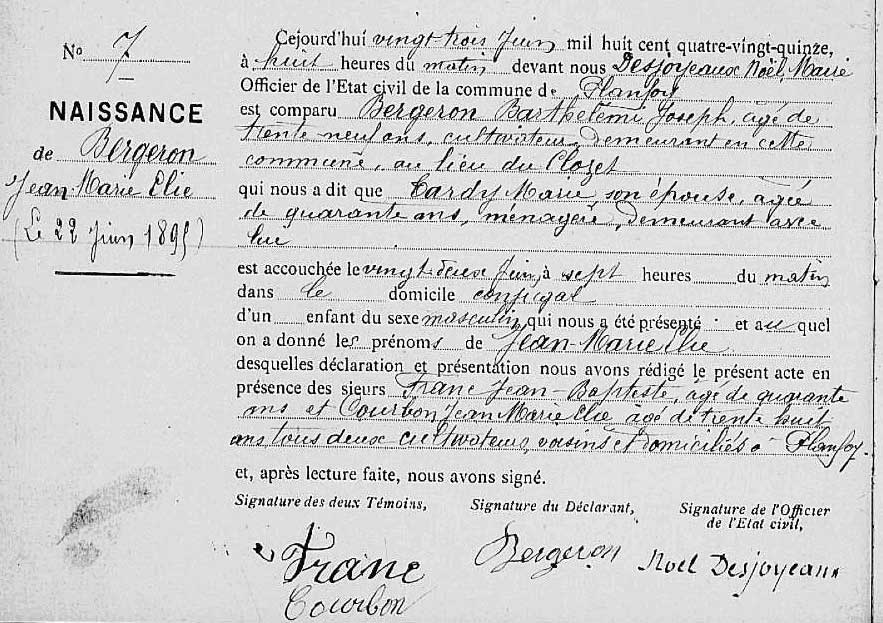 N° 7
NAISSANCE
de Bergeron
Jean-Marie Elie
(Le 22 Juin 1895)
Cejourd'hui vingt-trois Juin mil huit cent quatre-vingt-quinze,
à huit heures du matin devant nous Desjoyeaux Noël, Marie
Officier de l'Etat civil de la commune de Planfoy
est comparu Bergeron Barthelemi Joseph, âgé de
trente neuf ans, cultivateur, demeurant en cette
commune, au lieu du Clozet
qui nous a dit que Tardy Marie son épouse, agée
de quarante ans, ménagère, demeurant avec
lui
est accouchée le vingt-deux Juin, à sept heures du matin
dans le domicile conjugal
d'un enfant du sexe masculin, qui nous a été présenté et auquel
on a donné les prénoms de Jean-Marie Elie
desquelles déclaration et présentation nous avons rédigé le présent acte en
présence des sieurs Franc Jean-Baptiste, âgé de quarante
ans et Courbon Jean Marie Elie âgé de trente huit
ans tous deux cultivateurs, voisins et domiciliés à Planfoy.
et, après lecture faite, nous avons signé.
Signature des deux Témoins, Signature du Déclarant, Signature de l'Officier
de l'Etat civil,
Franc Bergeron Noël Desjoyeaux
Courbon